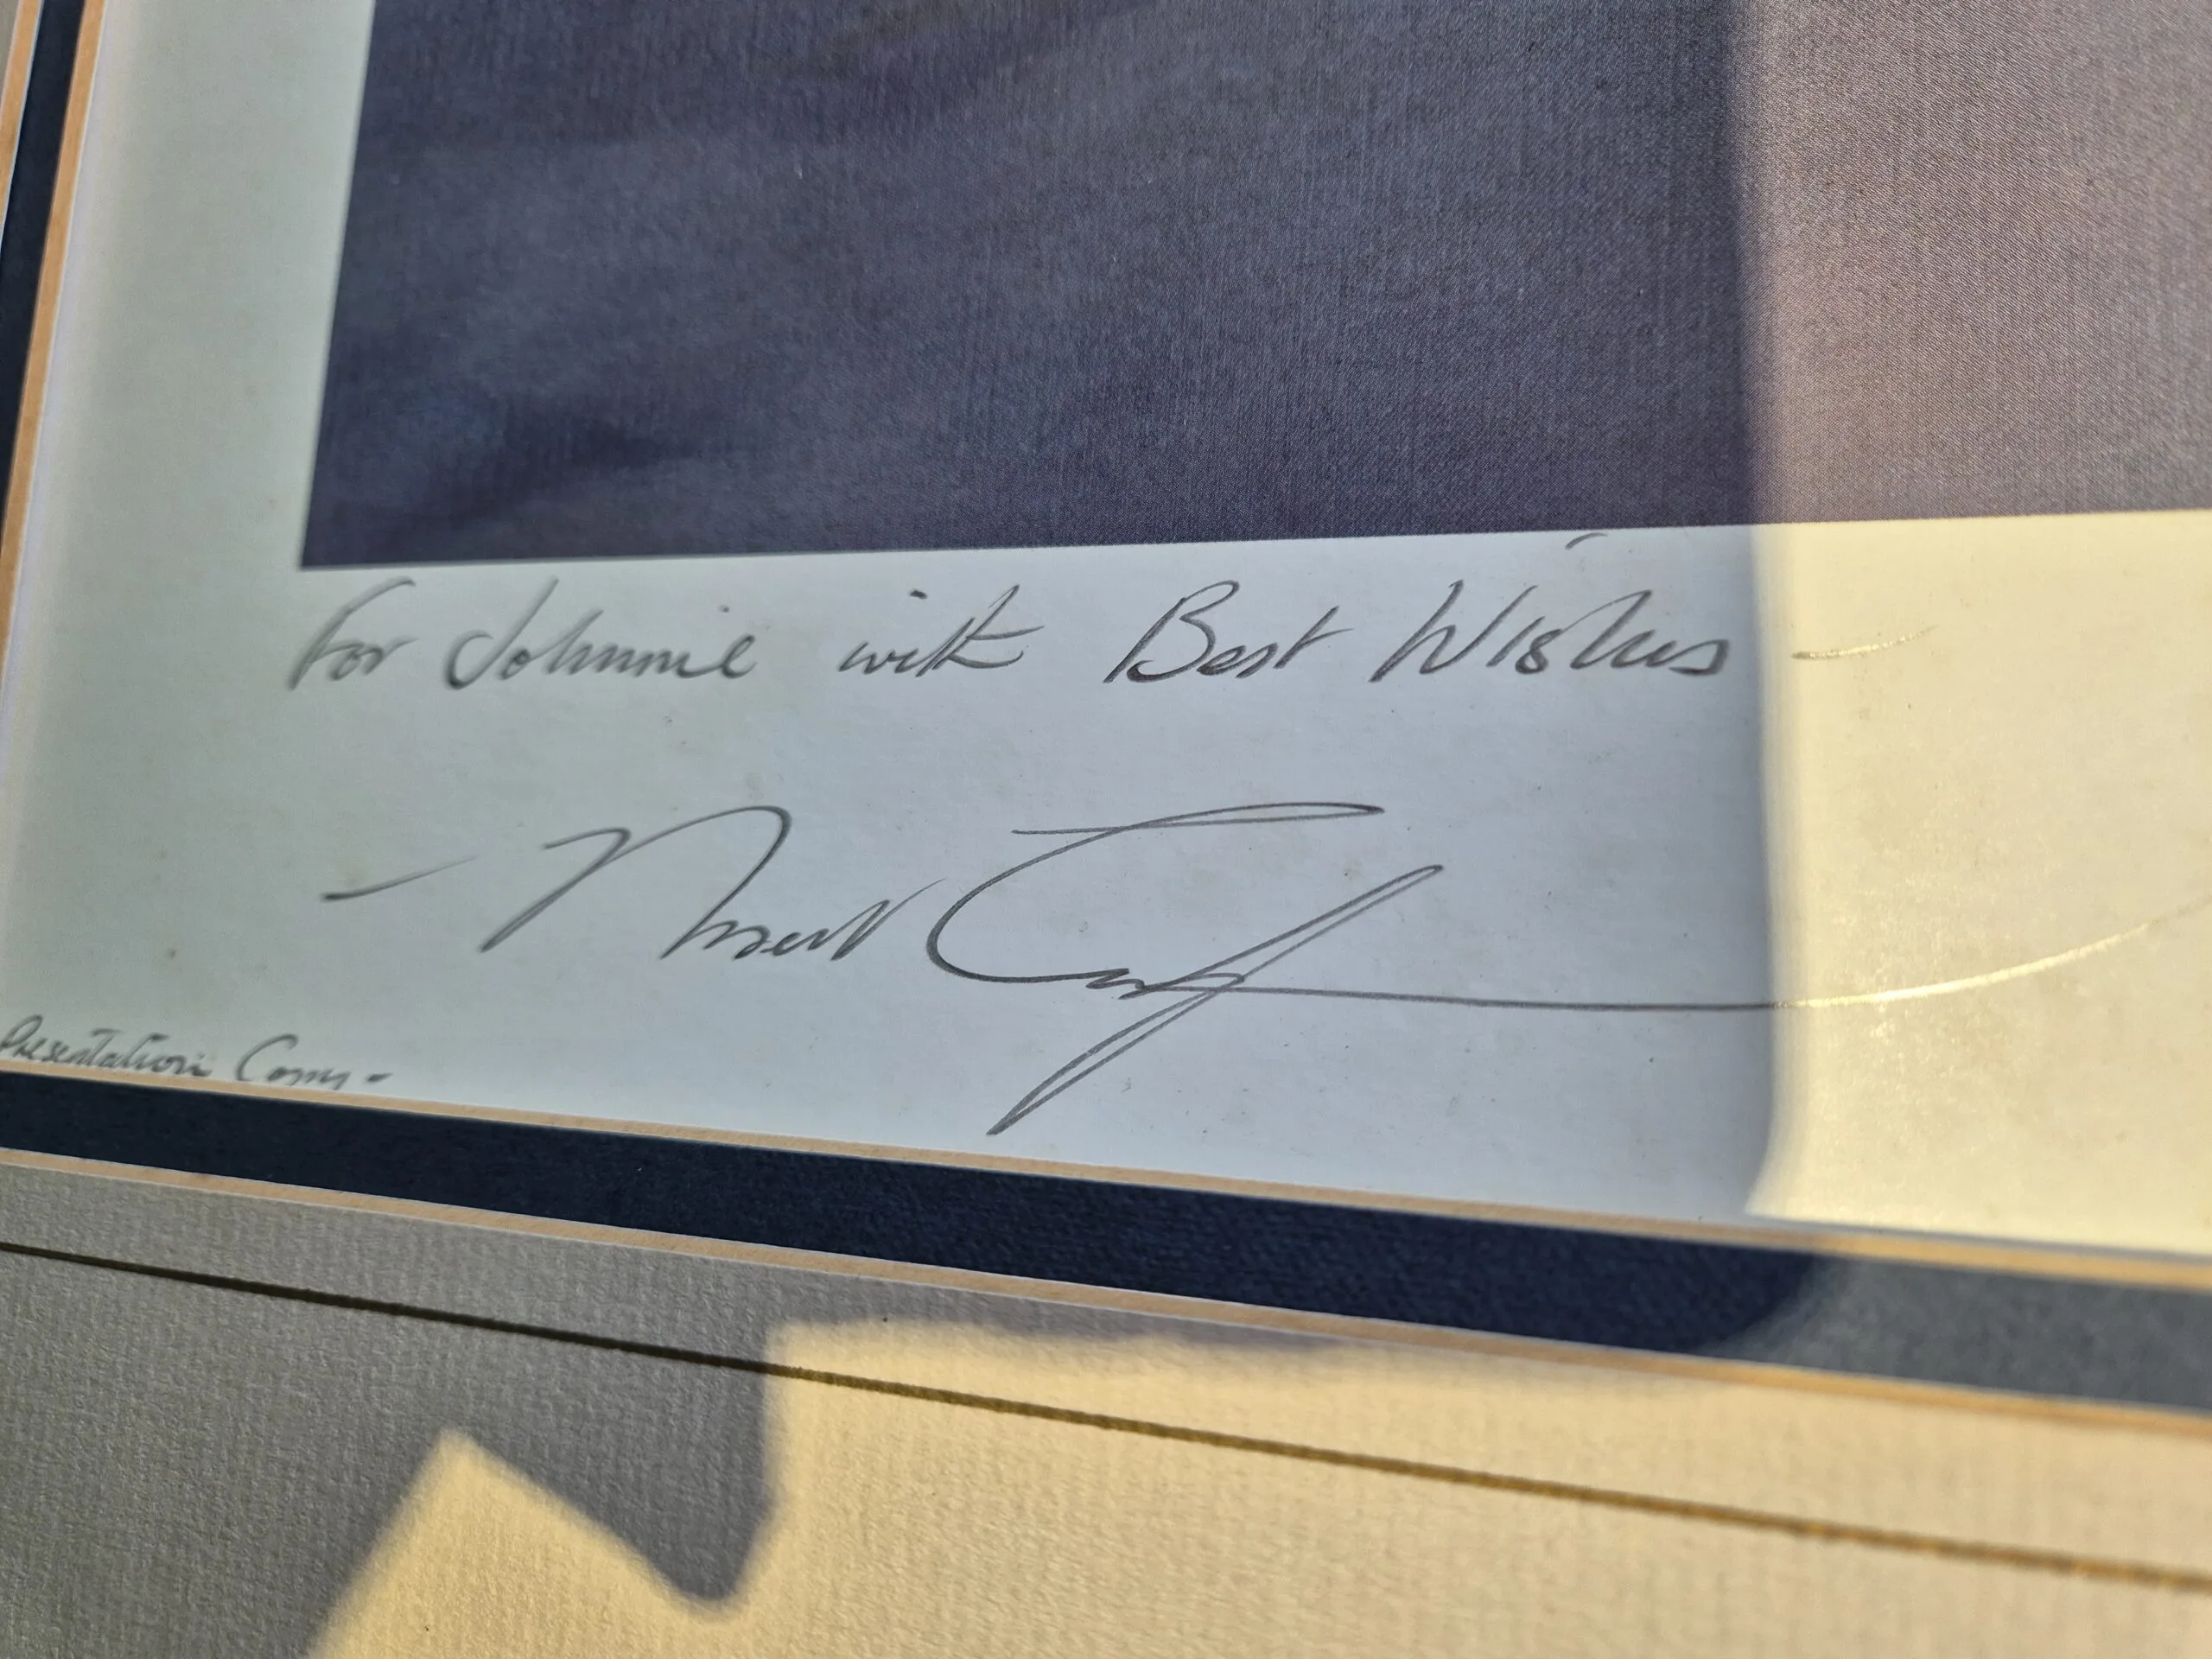 For Johnnie with Best Wishes -
Presentation Copy -